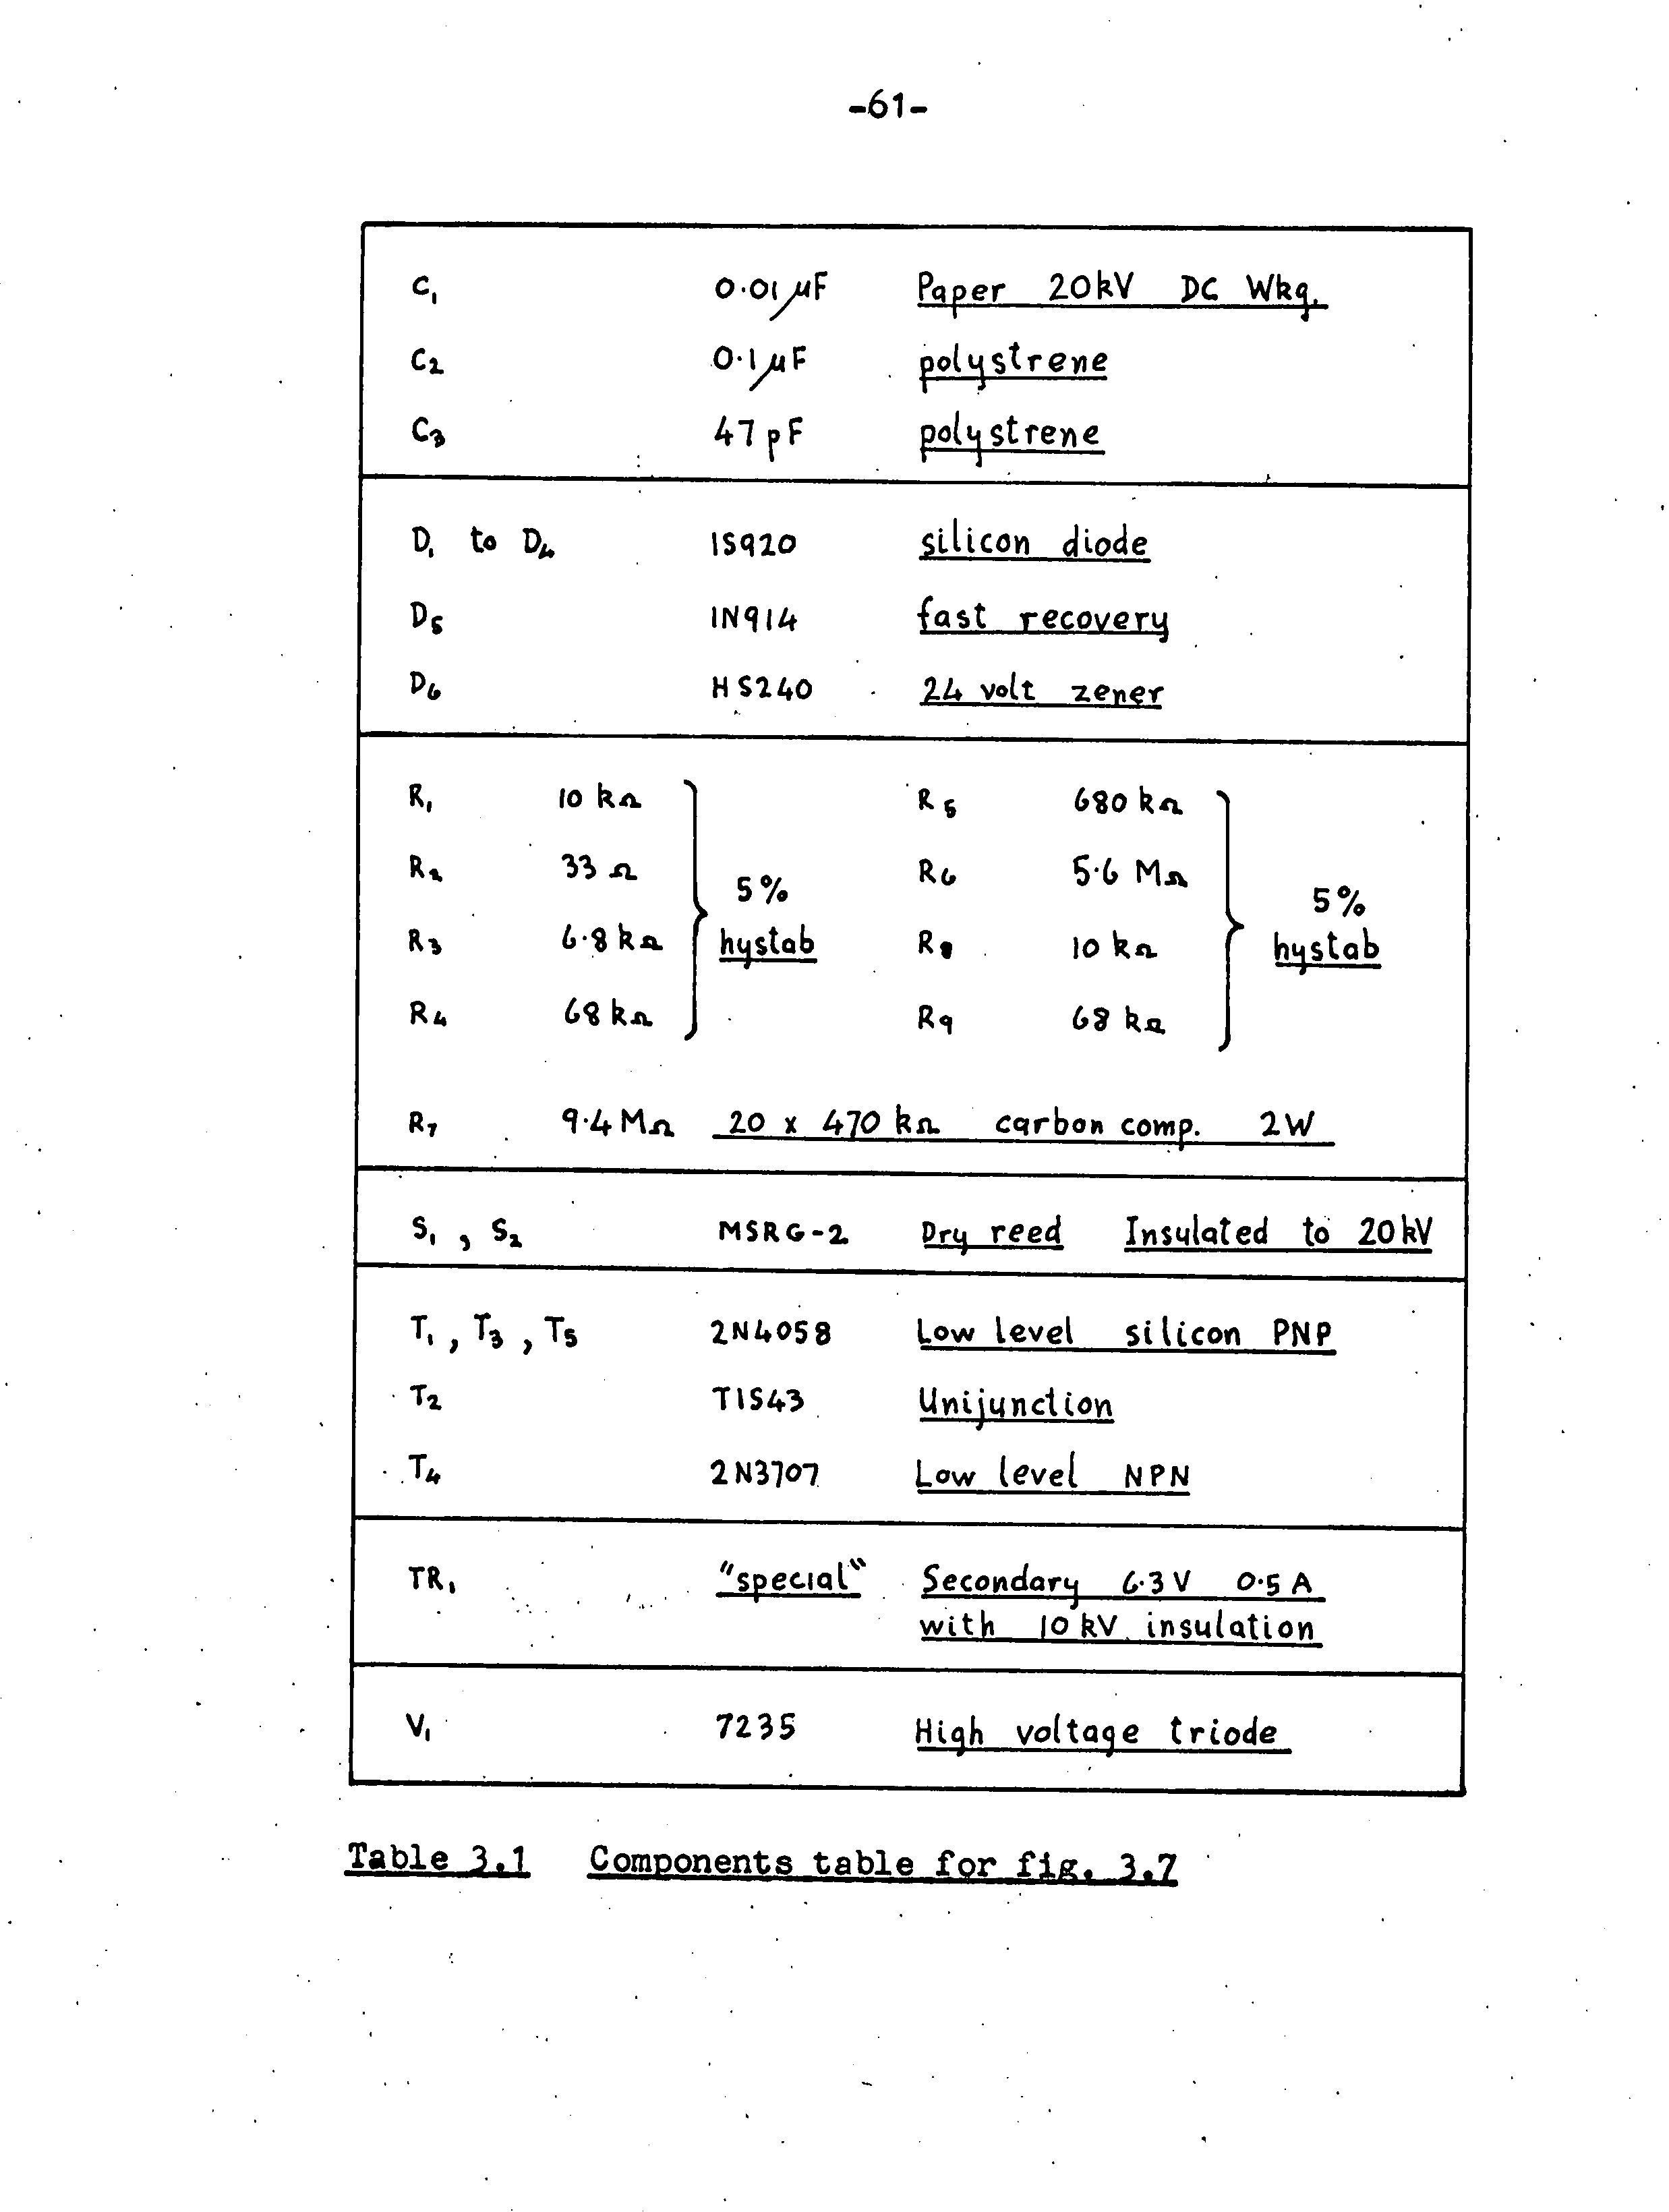 -61-
C₁ 0.01 µF Paper 20kV DC Wkg.
C₂ 0.1 µF polystrene
C₃ 47 pF polystrene
D₁ to D₄ 1S920 silicon diode
D₅ 1N914 fast recovery
D₆ HS240 24 volt zener
R₁ 10 kΩ R₅ 680 kΩ
R₂ 33 Ω R₆ 5.6 MΩ
5% 5%
R₃ 6.8 kΩ hystab R₈ 10 kΩ hystab
R₄ 68 kΩ R₉ 68 kΩ
R₇ 9.4 MΩ 20 x 470 kΩ carbon comp. 2W
S₁, S₂ MSRG-2 Dry reed Insulated to 20kV
T₁, T₃, T₅ 2N4058 Low level silicon PNP
T₂ TIS43 Unijunction
T₄ 2N3707 Low level NPN
TR₁ "special" Secondary 6.3V 0.5A
with 10kV insulation
V₁ 7235 High voltage triode
Table 3.1 Components table for fig. 3.7